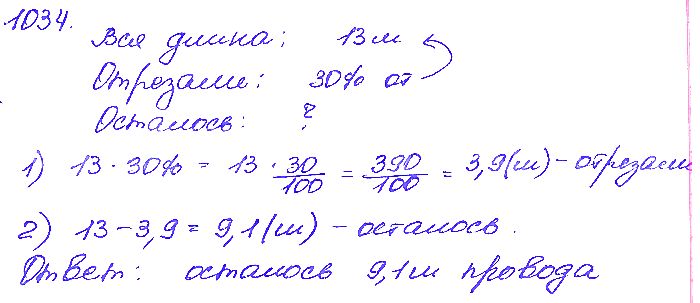 1034.
Вся длина: 13 м
Отрезали: 30% от
Осталось: ?
1) 13 · 30% = 13 · 30/100 = 390/100 = 3,9 (м) – отрезали
2) 13 – 3,9 = 9,1 (м) – осталось.
Ответ: осталось 9,1 м провода